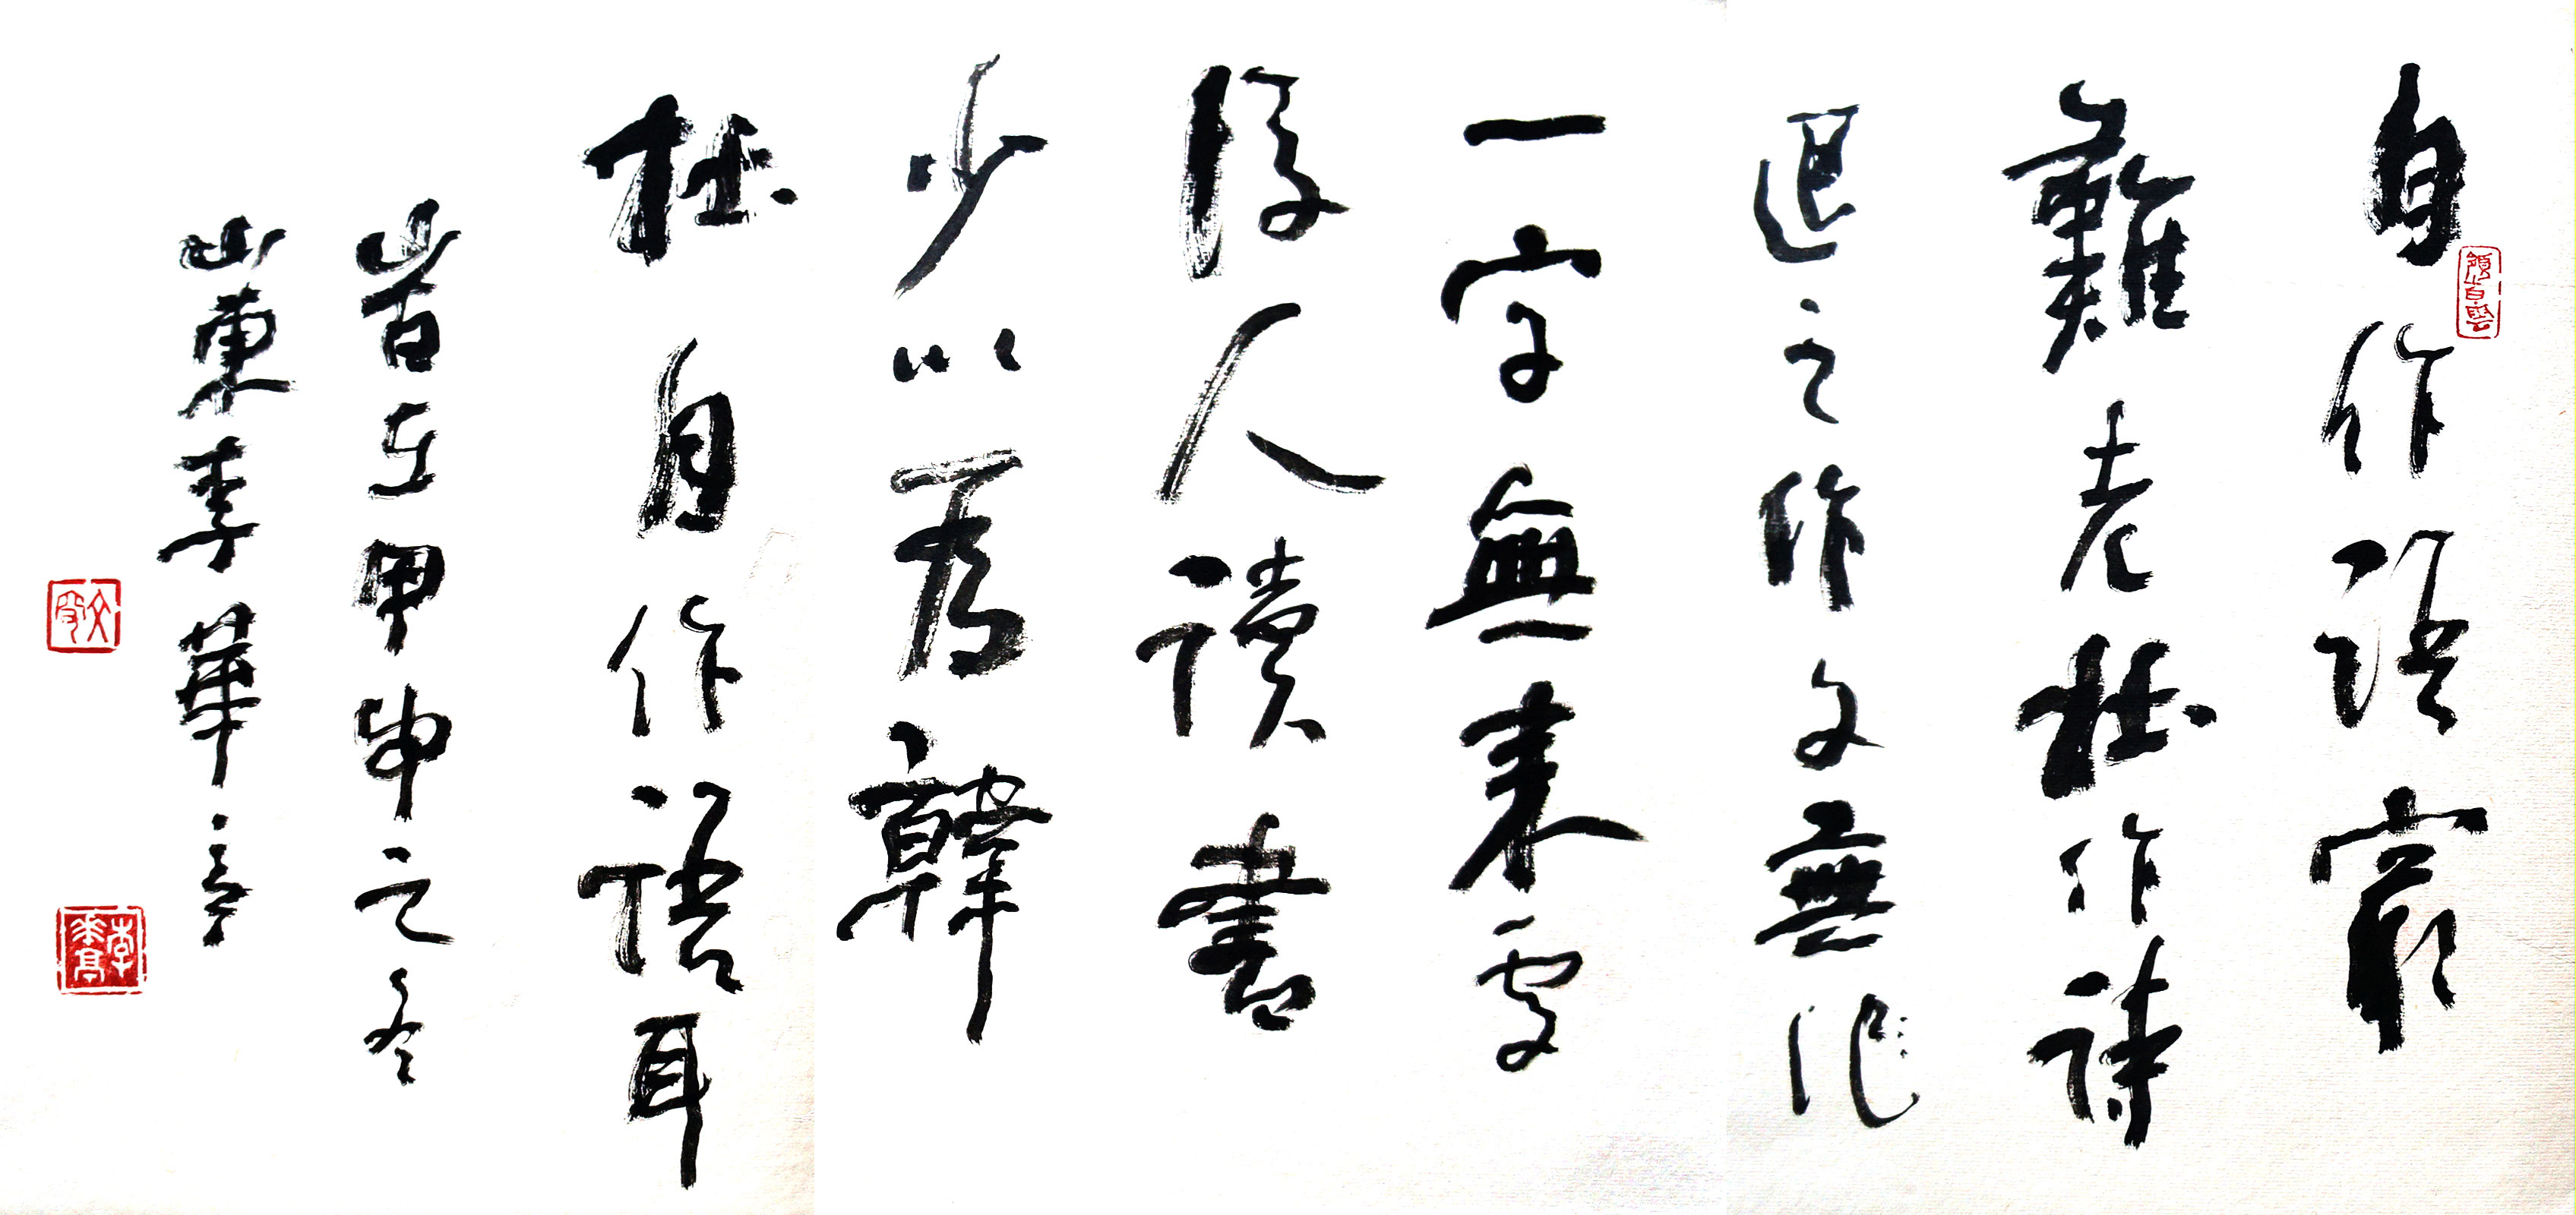 自作語最
難老杜作詩
退之作文無
一字無來處
後人讀書
少以為韓
杜自作語耳
峕在甲申之冬
山東李華